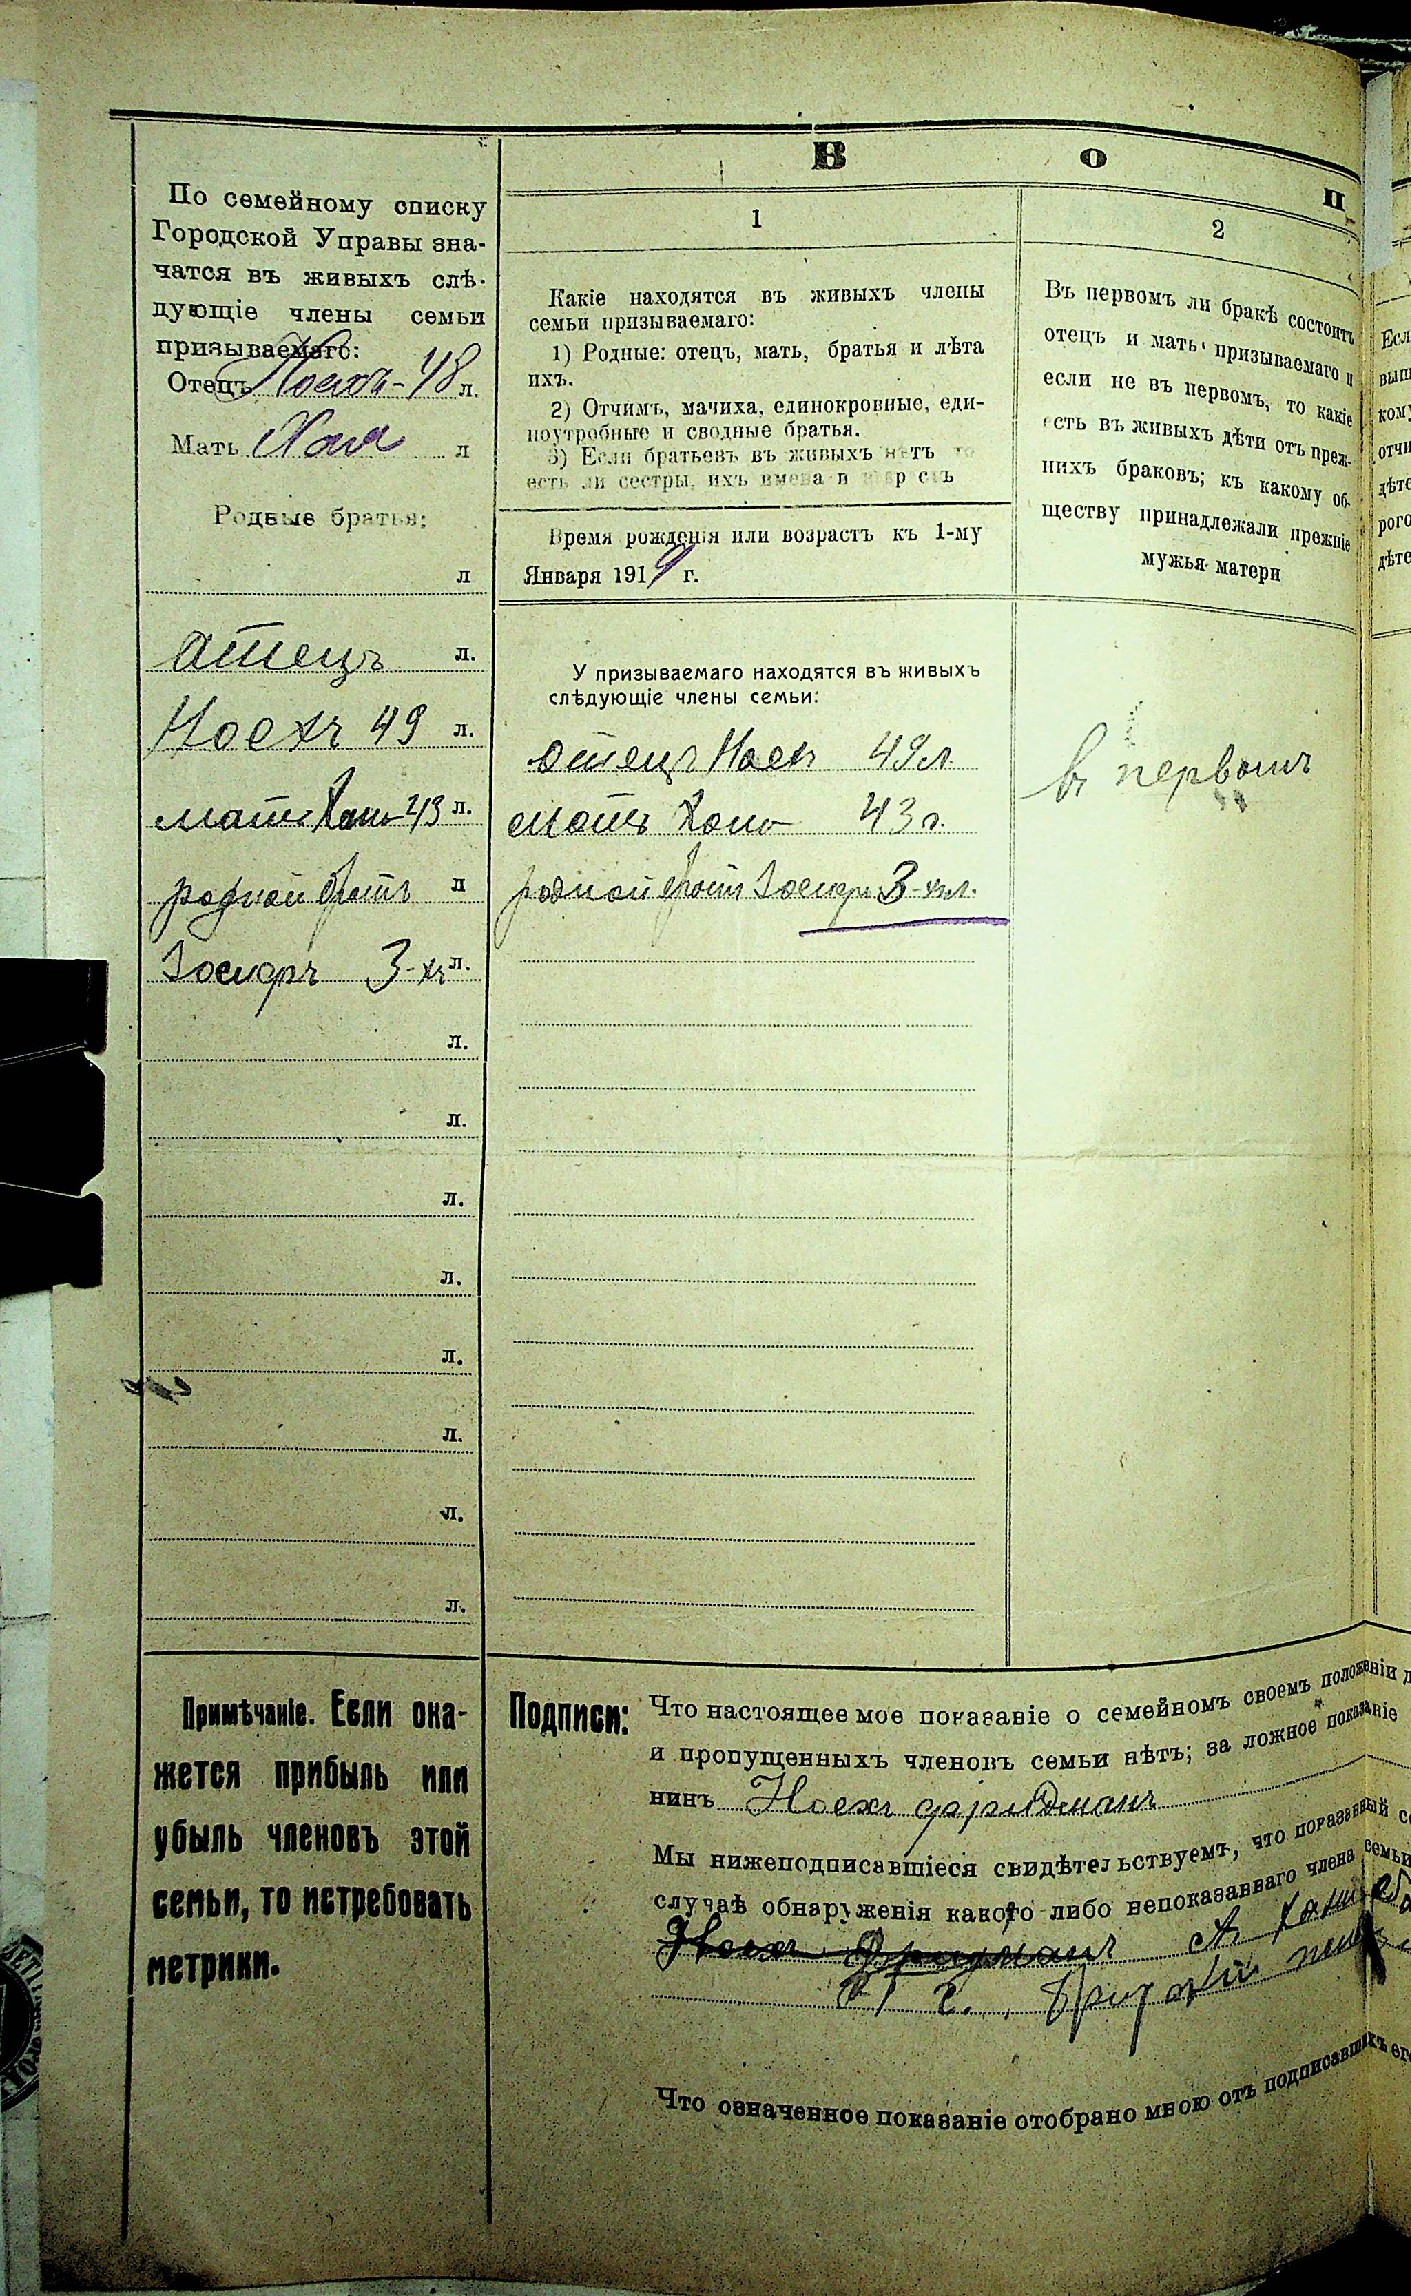 В О П
По семейному списку
Городской Управы зна-
чатся въ живыхъ слѣ-
дующіе члены семьи
призываемаго:
Отецъ Ноехъ - 48 л.
Мать Хая л
Родные братья:
л
Отецъ л.
Ноехъ 49 л.
мать Хая 43 л.
родной братъ л
Іосифъ 3-хъ л.
л.
л.
л.
л.
л.
л.
л.
л.
Примѣчаніе. Если ока-
жется прибыль или
убыль членовъ этой
семьи, то истребовать
метрики.
1
Какіе находятся въ живыхъ члены
семьи призываемаго:
1) Родные: отецъ, мать, братья и лѣта
ихъ.
2) Отчимъ, мачиха, единокровные, еди-
ноутробные и сводные братья.
3) Если братьевъ въ живыхъ нѣтъ то
есть ли сестры, ихъ имена и
Время рожденія или возрастъ къ 1-му
Января 1919 г.
У призываемаго находятся въ живыхъ
слѣдующіе члены семьи:
Отецъ Ноехъ 49 л
Мать Хая 43 г.
родной братъ Іосифъ 3-хъ л.
2
Въ первомъ ли бракѣ состоитъ
отецъ и мать призываемаго и
если не въ первомъ, то какіе
есть въ живыхъ дѣти отъ преж-
нихъ браковъ; къ какому об-
ществу принадлежали прежніе
мужья матери
въ первомъ
Есл
выш
кому
отчи
дѣте
рого
дѣте
Подписи: Что настоящее мое показаніе о семейномъ своемъ положеніи д
и пропущенныхъ членовъ семьи нѣтъ; за ложное показаніе
нинъ Ноехъ Фридманъ
Мы нижеподписавшіеся свидѣтельствуемъ, что показанный со
случаѣ обнаруженія какого либо непоказаннаго члена семьи
Ноехъ Фридманъ А.
Что означенное показаніе отобрано мною отъ подписавшихъ его